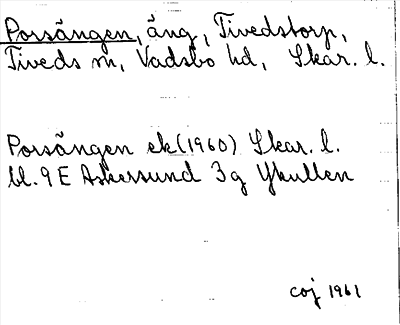 Porsängen, äng, Tivedstorp,
Tiveds sn, Vadsbo hd, Skar. l.
Porsängen ek (1960) Skar. l.
bl. 9 E Askersund 3g Ykullen
coj 1961